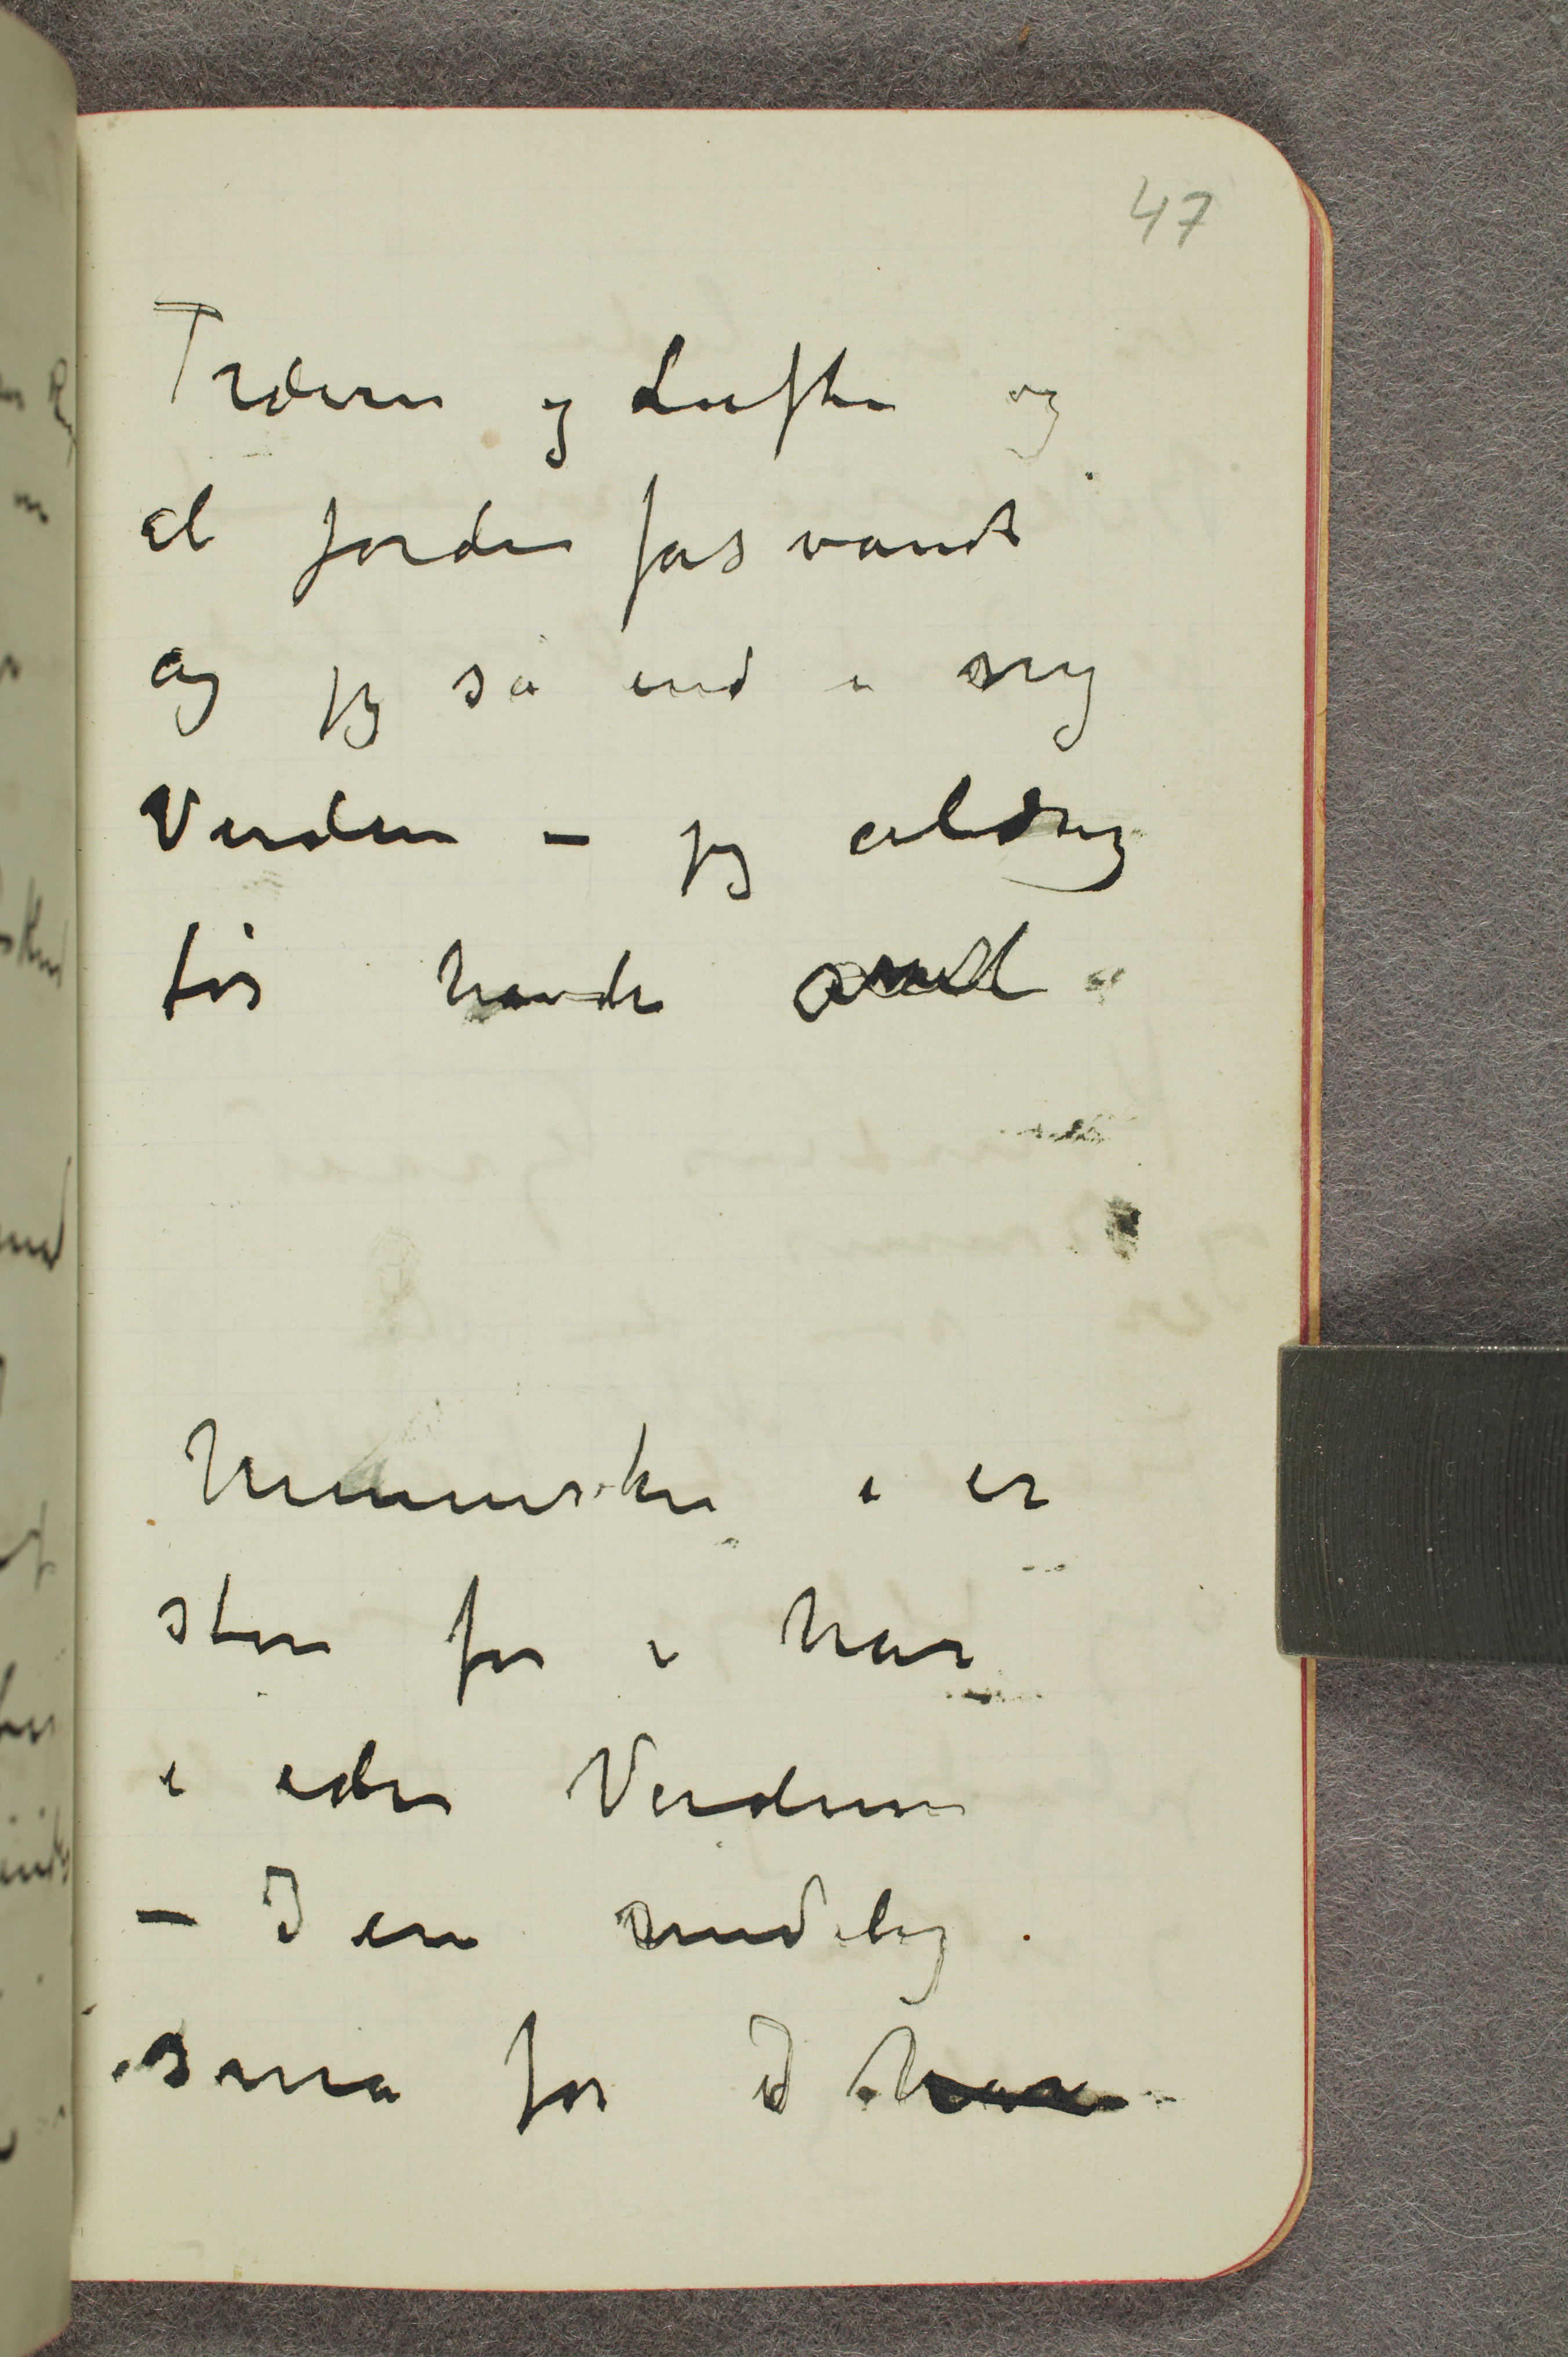 47
Træerne og Luften og
al Jorden forsvandt
og jeg så ind i ny
Verden – jeg aldrig
før havde anet
Mennesker i er
store for i har
i eder Verdenen
– I ere uendelig
små for I har